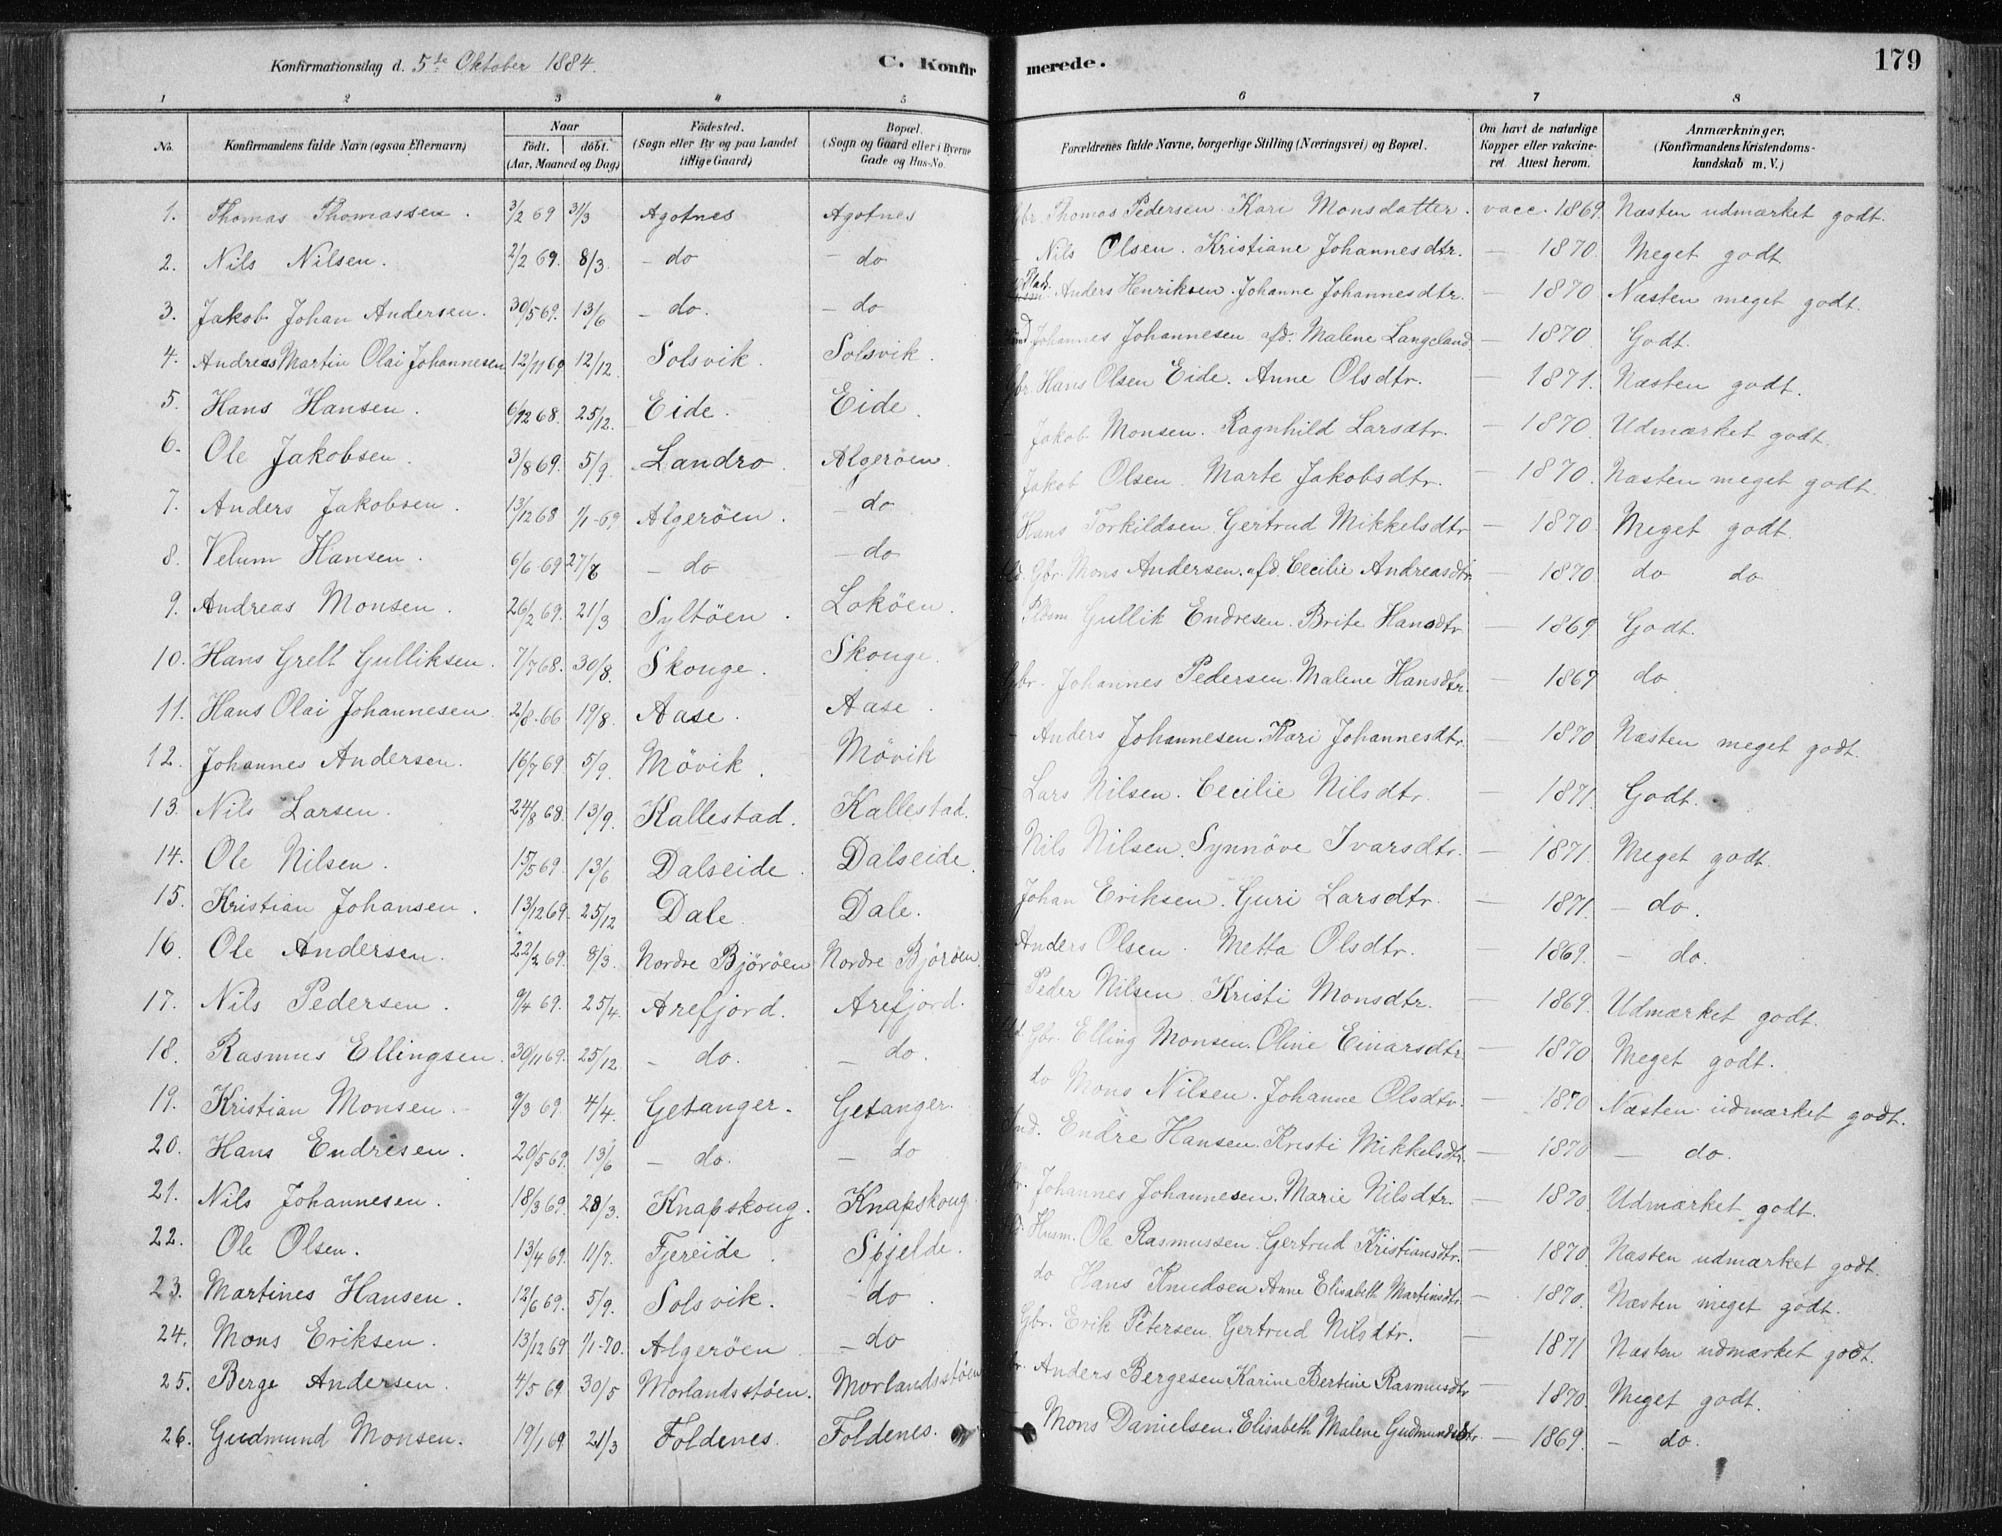 Konfirmationsdag d. 5te Oktober 1884. C. Konfirmerede. 179
1 2 3 4 5 6 7 8
No. Konfirmandens fulde Navn (ogsaa Efternavn) Naar Födt. döbt. (Aar, Maaned og Dag) Födested. (Sogn eller By og paa Landet tillige Gaard) Bopæl. (Sogn og Gaard eller i Byerne Gade og Hus-No. Forældrenes fulde Navne, borgerlige Stilling (Næringsvei) og Bopæl. Om havt de naturlige Kopper eller vakcineret. Attest herom. Anmærkninger. (Konfirmandens Kristendomskundskab m. V.)
1. Thomas Thomassen. 3/2 69 31/3 Agotnes Agotnes Thomas Pedersen. Kari Monsdatter. vacc. 1869. Næsten udmærket godt.
2. Nils Nilsen. 2/2 69. 8/3. — do — do Nils Olsen. Kristiane Johannesdtr. — 1870. Meget godt
3. Jakob Johan Andersen. 30/5 69. 13/6 — do. — do Anders Henriksen. Johanne Johannesdtr. — 1870 Næsten meget godt.
4. Andreas Martin Olai Johannesen 12/11 69 12/12. Solsvik. Solsvik. Johannes Johannesen afd. Malene Langeland — 1870. Godt.
5. Hans Hansen. 6/12 68. 25/12. Eide. Eide. Gbr. Hans Olsen Eide. Anne Olsdtr. — 1871. Næsten godt.
6. Ole Jakobsen. 3/8 69. 5/9. Landro. Algeröen. Jakob Monsen. Ragnhild Larsdtr. — 1870. Udmærket godt.
7. Anders Jakobsen. 13/12 68 1/1-69 Algeröen. — do Jakob Olsen. Marte Jakobsdtr. — 1870. Næsten meget godt.
8. Velum Hansen. 6/6 69 27/6 — do — do Hans Torkildsen. Gertrud Mikkelsdtr — 1870. Meget godt.
9. Andreas Monsen. 26/2 69. 21/3 Syltöen. Loköen. Gbr. Mons Andersen. afd. Cecilie Andreasdtr — 1870. do do
10. Hans Grelt Gulliksen. 7/7 68. 30/8. Skouge. Skouge. Gullik Endresen. Brite Hansdtr — 1869 Godt.
11. Hans Olai Johannesen 2/8-66 19/8. Aase. Aase. Gbr. Johannes Pedersen. Malene Hansdtr. — 1869 do
12. Johannes Andersen. 16/7 69. 5/9. Mövik. Mövik Anders Johannesen. Kari Johannesdtr. — 1870 Næsten meget godt.
13. Nils Larsen. 24/8 68. 13/9. Kallestad. Kallestad. Lars Nilsen. Cecilie Nilsdtr. — 1871. Godt.
14. Ole Nilsen. 15/5 69. 13/6 Dalseide. Dalseide. Nils Nilsen. Synnöve Ivarsdtr. — 1871. Meget godt.
15. Kristian Johansen. 13/12 69. 25/12 Dale. Dale. Johan Eriksen. Guri Larsdtr. — 1871. — do.
16. Ole Andersen. 22/2 69. 8/3. Nordre Björöen Nordre Björöen. Anders Olsen. Metta Olsdtr. 1869. — do.
17. Nils Pedersen. 9/4 69. 25/4. Arefjord. Arefjord. Peder Nilsen. Kristi Monsdtr. — 1869. Udmærket godt.
18. Rasmus Ellingsen. 30/11 69. 25/12 — do. — do. Gbr. Elling Monsen. Oline Einarsdtr — 1870 Meget godt.
19. Kristian Monsen. 9/3 69. 4/4. Getanger. Getanger. do Mons Nilsen. Johanne Olsdtr. — 1870 Næsten udmærket godt.
20. Hans Endresen. 20/5 69. 13/6 — do. — do Endre Hansen. Kristi Mikkelsdtr. — 1870 — do.
21. Nils Johannesen. 18/3 69. 28/3. Knapskoug. Knapskoug. Johannes Johannesen. Marie Nilsdtr. — 1870. Udmærket godt.
22. Ole Olsen. 13/4 69. 11/7. Fjereide. Spjelde. Husm. Ole Rasmussen. Gertrud Kristiansdtr. — 1870. Næsten udmærket godt.
23. Martines Hansen. 12/6 69. 5/9. Solsvik. — do. do Hans Knudsen Anne Elisabeth Martinsdtr — 1870. Næsten meget godt.
24. Mons Eriksen. 13/12 69 1/1-70. Algeröen. — do Gbr. Erik Petersen. Gertrud Nilsdtr. — 1871 Næsten udmærket godt.
25. Berge Andersen. 4/5 69 30/5 Morlandsstöen. Morlandsstöen Anders Bergesen Karine Bertine Rasmusdtr — 1870. Meget godt.
26. Gudmund Monsen. 19/1 69. 21/3 Foldenes. Foldenes. Mons Danielsen. Elisabeth Malene Gudmundsdtr. — 1869. — do.